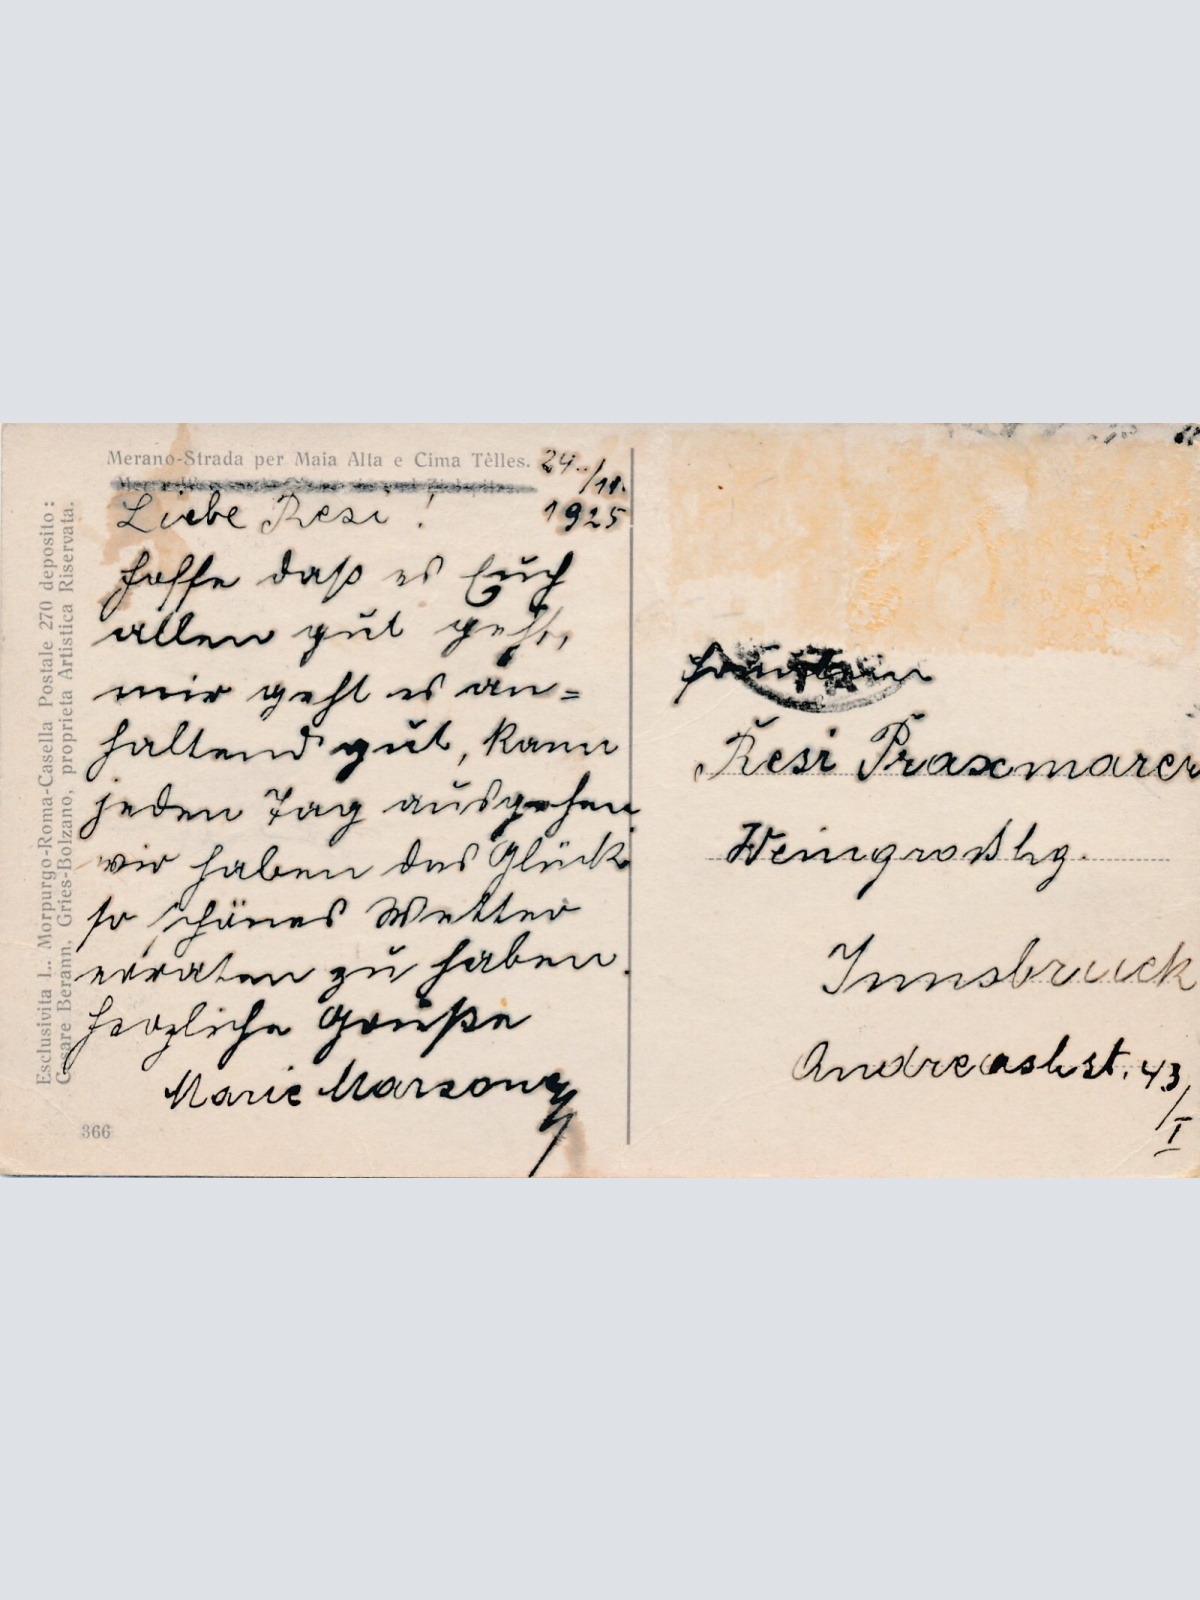 Merano-Strada per Maia Alta e Cima Tèlles.
24./11.
1925
Liebe Resi!
hoffe daß es Euch
allen gut geht,
mir geht es an=
haltend gut, kann
jeden Tag ausgehen
wir haben das Glück
so schönes Wetter
erraten zu haben.
Herzliche Grüße
Marie
366
Esclusivita L. Morpurgo-Roma-Casella Postale 270 deposito:
Cesare Berann. Gries-Bolzano, proprieta Artistica Riservata.
Fräulein
Resi Praxmarer
Weingroßhg.
Innsbruck
Andreashst. 43
/I